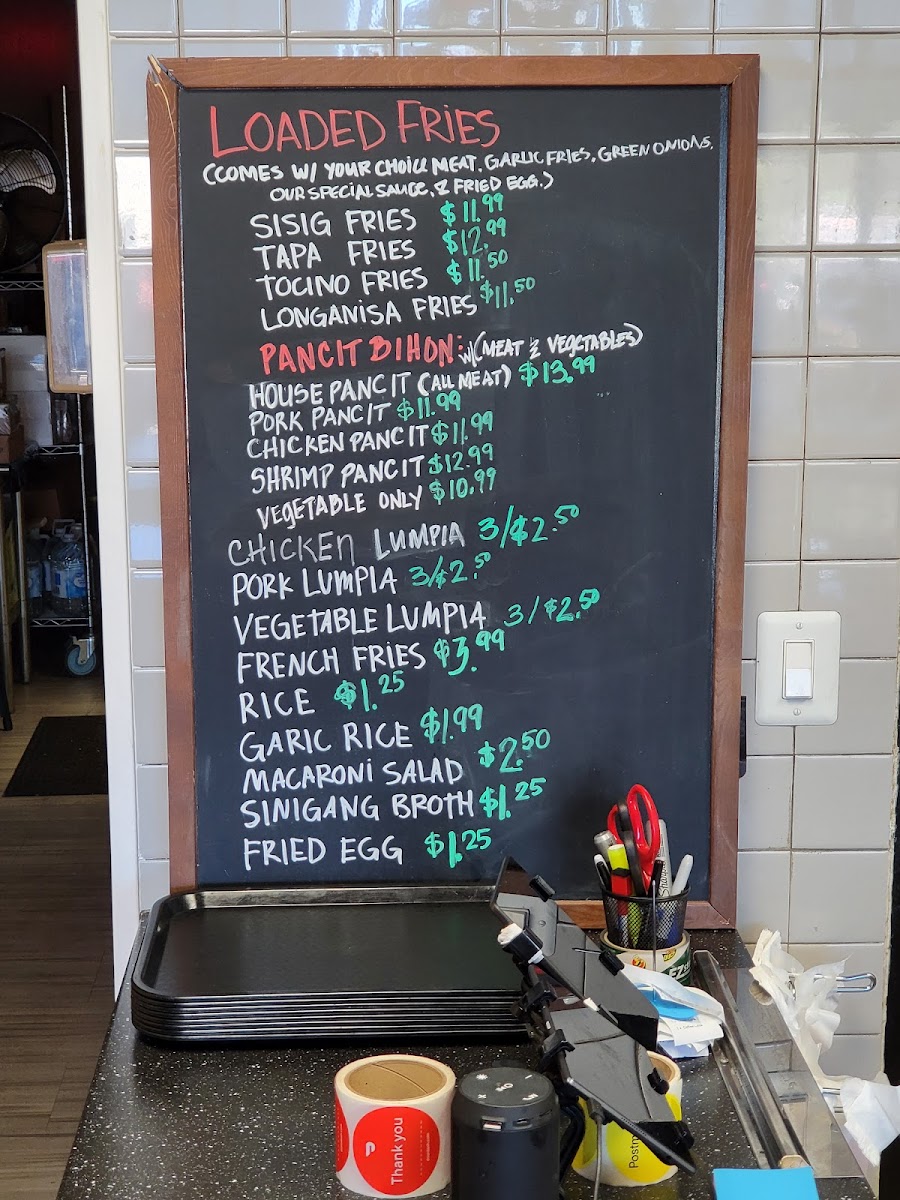 LOADED FRIES
(COMES W/ YOUR CHOICE MEAT, GARLIC FRIES, GREEN ONIONS,
OUR SPECIAL SAUCE, & FRIED EGG.)
SISIG FRIES $11.99
TAPA FRIES $12.99
TOCINO FRIES $11.50
LONGANISA FRIES $11.50
PANCIT BIHON: W/(MEAT & VEGETABLES)
HOUSE PANCIT (ALL MEAT) $13.99
PORK PANCIT $11.99
CHICKEN PANCIT $11.99
SHRIMP PANCIT $12.99
VEGETABLE ONLY $10.99
CHICKEN LUMPIA 3/$2.50
PORK LUMPIA 3/$2.50
VEGETABLE LUMPIA 3/$2.50
FRENCH FRIES $3.99
RICE $1.25
GARIC RICE $1.99
MACARONI SALAD $2.50
SINIGANG BROTH $1.25
FRIED EGG $1.25
Sharpie
Thank you
Postm